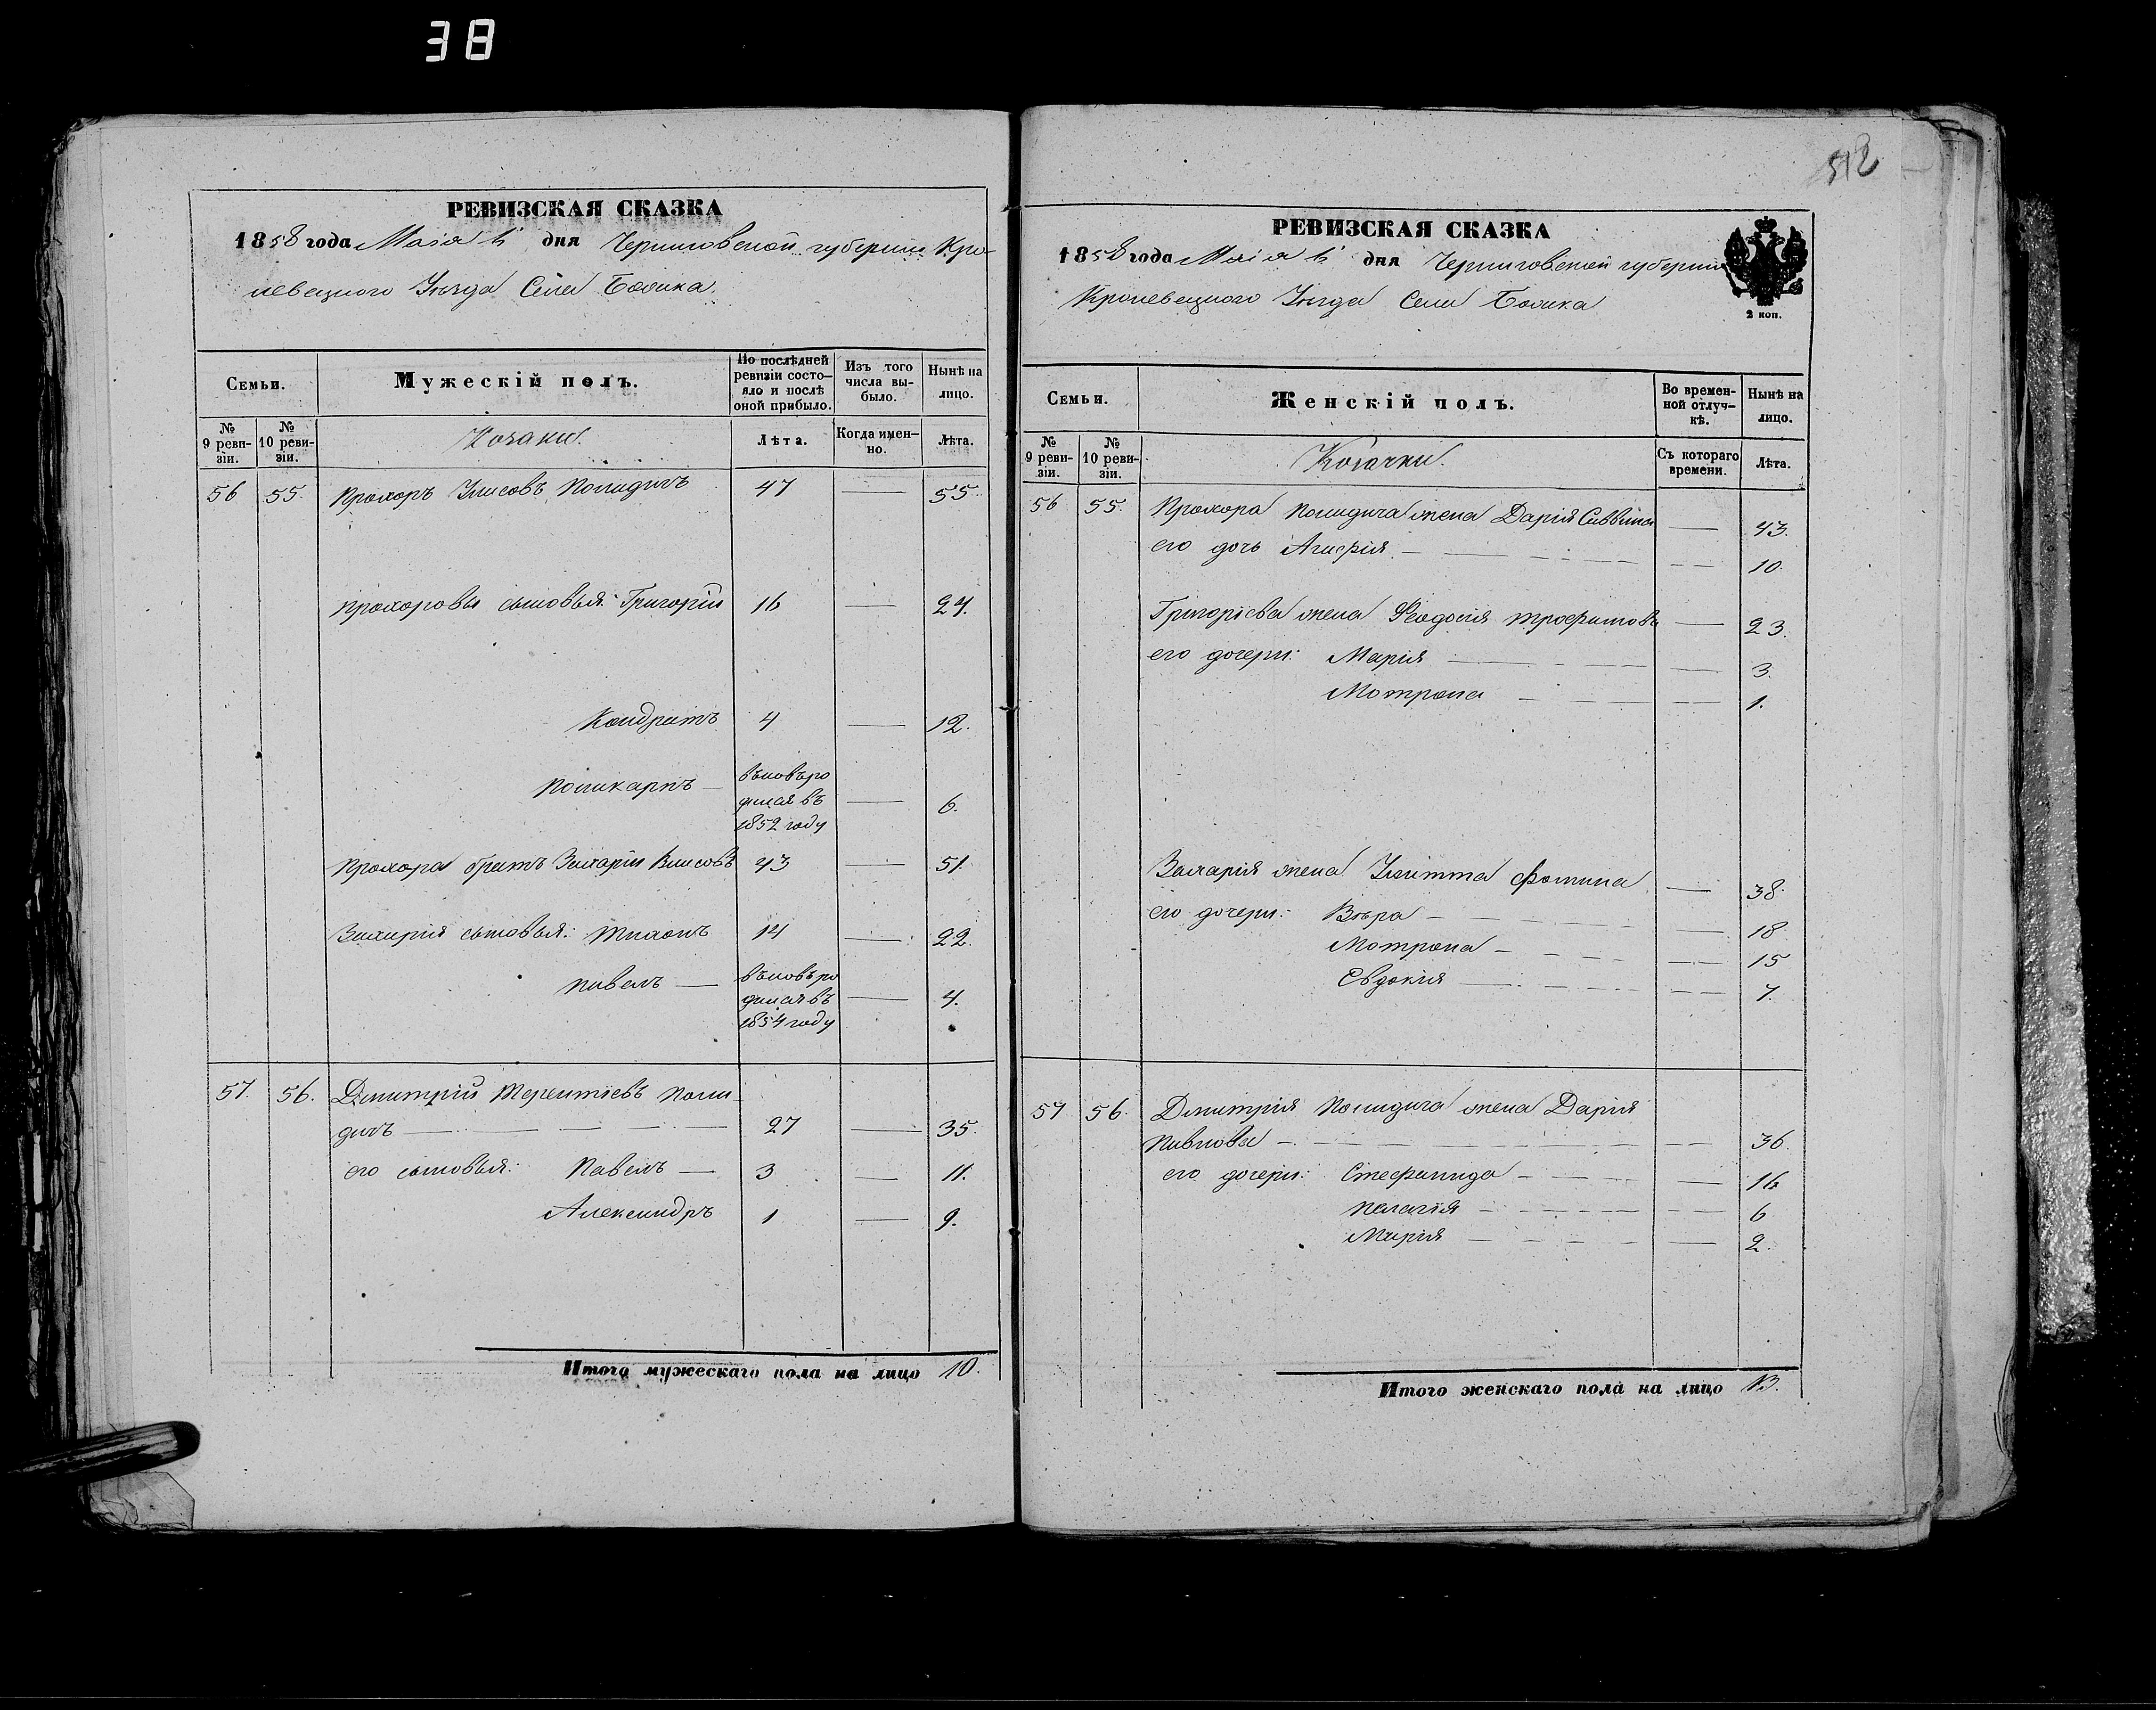 38
РЕВИЗСКАЯ СКАЗКА
1858 года Маія дня Черниговской губерніи Кро-
левецкого Уѣзда Села
Семьи.
Мужескій полъ.
По послѣдней ревизіи состо-
яло и послѣ оной прибыло.
Изъ того числа вы-
было.
Нынѣ на лицо.
№ 9 реви-
зіи.
№ 10 реви-
зіи.
Козаки.
Лѣта.
Когда имен-
но.
Лѣта.
56 55. Прохоръ Власовъ 47 — 55.
Прохоровы сыновья: Григорій 16 — 24.
Кондратъ 4 — 12.
Поликарпъ —
вѣновьро
дился въ — 6.
1852 году
Прохора братъ Захарій Власовъ 43 — 51.
Захарія сыновья: Тихонъ 14 — 22.
Павелъ —
вѣновьро
дился въ — 4.
1854 году
57. 56. Дмитрій Терентіевъ
27 — 35.
его сыновья: Павелъ — 3 — 11.
Александръ 1 — 9.
Итого мужескаго пола на лицо 10.
512
РЕВИЗСКАЯ СКАЗКА
1858 года Маія дня Черниговской губерніи
Кролевецкого Уѣзда Села
2 коп.
Семьи.
Женскій полъ.
Во времен-
ной отлуч-
кѣ.
Нынѣ на лицо.
№ 9 реви-
зіи.
№ 10 реви-
зіи.
Козачки.
Съ котораго времени.
Лѣта.
56 55. Прохора жена Дарія Саввина — 43.
его дочь — 10.
Григоріева жена Феодосія Трофимова — 23.
его дочери: Марія — 3.
Мотрона — 1.
Захарія жена Улитта Фомина — 38.
его дочери: Вѣра — 18
Мотрона — 15
Евдокія — 7.
57 56. Дмитрія жена Дарія
Павлова — 36.
его дочери: Стефанида — 16
Пелагія — 6
Марія — 2.
Итого женскаго пола на лицо 13.